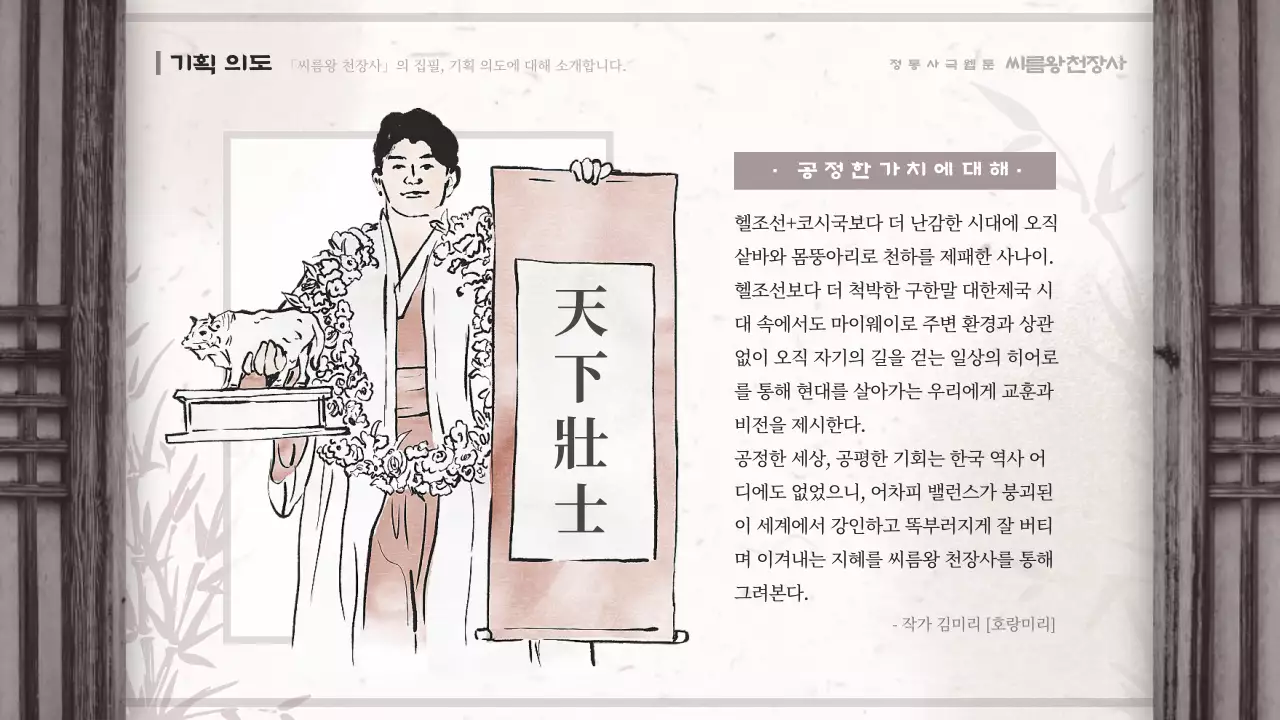 기획 의도
「씨름왕 천장사」의 집필, 기획 의도에 대해 소개합니다.
정통사극웹툰 씨름왕천장사
天
下
壯
士
· 공정한가치에대해 ·
헬조선+코시국보다 더 난감한 시대에 오직
샅바와 몸뚱아리로 천하를 제패한 사나이.
헬조선보다 더 척박한 구한말 대한제국 시
대 속에서도 마이웨이로 주변 환경과 상관
없이 오직 자기의 길을 걷는 일상의 히어로
를 통해 현대를 살아가는 우리에게 교훈과
비전을 제시한다.
공정한 세상, 공평한 기회는 한국 역사 어
디에도 없었으니, 어차피 밸런스가 붕괴된
이 세계에서 강인하고 똑부러지게 잘 버티
며 이겨내는 지혜를 씨름왕 천장사를 통해
그려본다.
- 작가 김미리 [호랑미리]